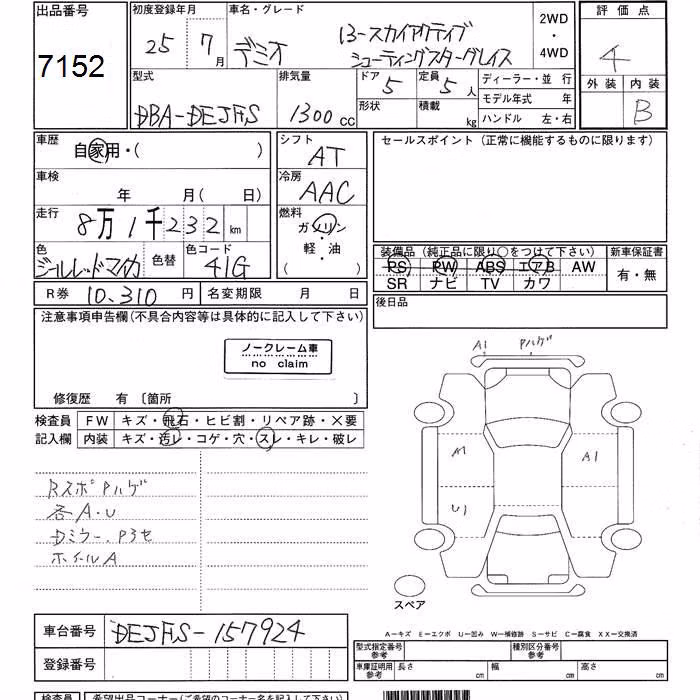 出品番号 初度登録年月 車名・グレード 2WD 評価点
7152 25年 7月 デミオ 13-スカイアクティブ ・ 4
シューティングスターグレイス 4WD 外装 内装
型式 排気量 ドア 5 定員 5人 ディーラー・並行 B
DBA-DEJFS 1300cc 形状 積載 kg モデル年式 年
ハンドル 左・右
車歴 自家用・( ) シフト AT セールスポイント (正常に機能するものに限ります)
車検 年 月( 日) 冷房 AAC
走行 8万1千232km 燃料 ガソリン・軽・油
( )
色 ジールレッドマイカ 色替 色コード 41G
装備品 (純正品に限り○をつけて下さい) 新車保証書
PS PW ABS エアB AW 有・無
SR ナビ TV カワ
R券 10,310円 名変期限 月 日 後日品
注意事項申告欄(不具合内容等は具体的に記入して下さい)
ノークレーム車
no claim
修復歴 有 〔箇所 〕
検査員 FW キズ・飛石・ヒビ割・リペア跡・×要
記入欄 内装 キズ・汚レ・コゲ・穴・スレ・キレ・破レ
A1 Pルゲ
A1 A1
U1
RスポPルゲ
各A.U
Dミラー.P3セ
ホイールA
スペア
車台番号 DEJFS-157924
登録番号
A−キズ E−エクボ U−凹み W−補修跡 S−サビ C−腐食 XX−交換済
型式指定番号 参考 種別区分番号 参考
車庫証明用 参考 長さ cm 幅 cm 高さ cm
検査員 希望出品コーナー(ご希望のコーナー名を記入下さい)